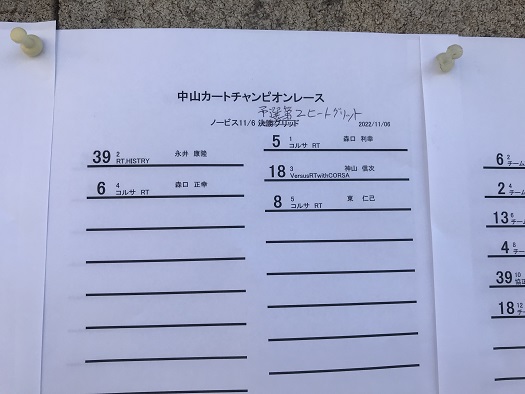 中山カートチャンピオンレース
予選第2ヒートグリッド
ノービス11/6 決勝グリッド
2022/11/06
5 1 森口 利幸
コルサ RT
39 2 永井 康隆
RT.HISTRY
18 3 神山 信次
VersusRTwithCORSA
6 4 森口 正幸
コルサ RT
8 5 東 仁己
コルサ RT
6 2
チーム
2 4
チーム
13 6
チーム
4 8
チーム
39 10
協正
18 12
チー